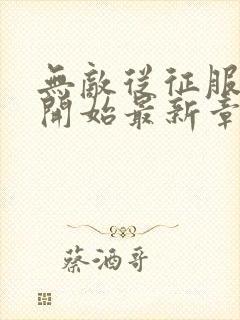 無敵從征服
開始最新章
蔡酒哥